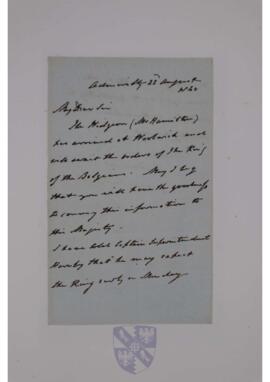 Admiralty 22 August
1840
My Dear Sir
The Widgeon (Mr Hamilton)
has arrived at Woolwich and
will await the orders of The King
of the Belgians. May I beg
that you will have the goodness
to convey this information to
His Majesty.
I have told Captain Superintendent
Hornby that he may expect
the King early on Monday.